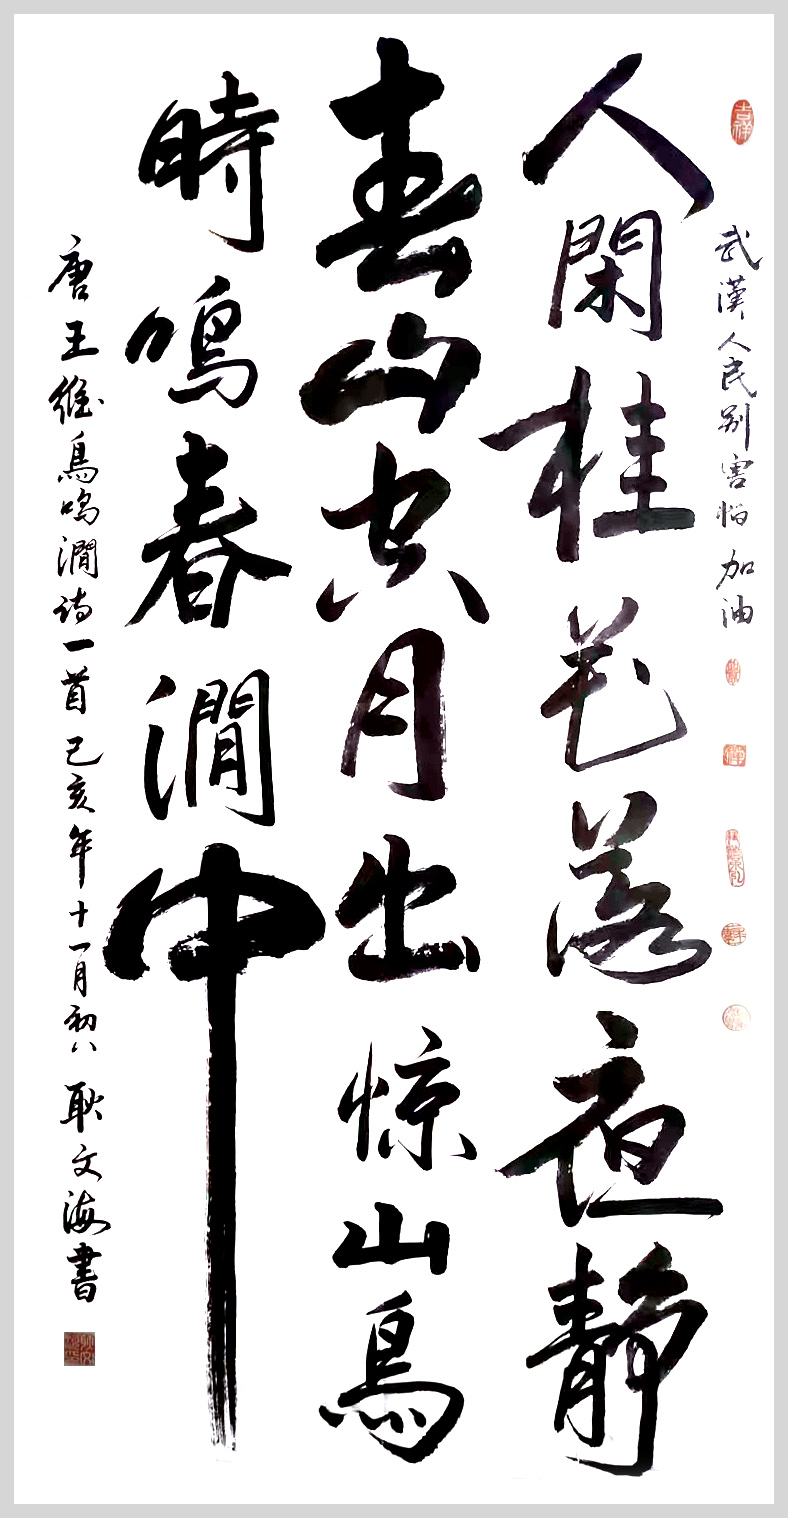 吉祥
武漢人民别害怕加油
人閑桂花落夜靜
春山空月出惊山鳥
時鳴春澗中
唐王維鳥鳴澗诗一首己亥年十一月初八耿文海書